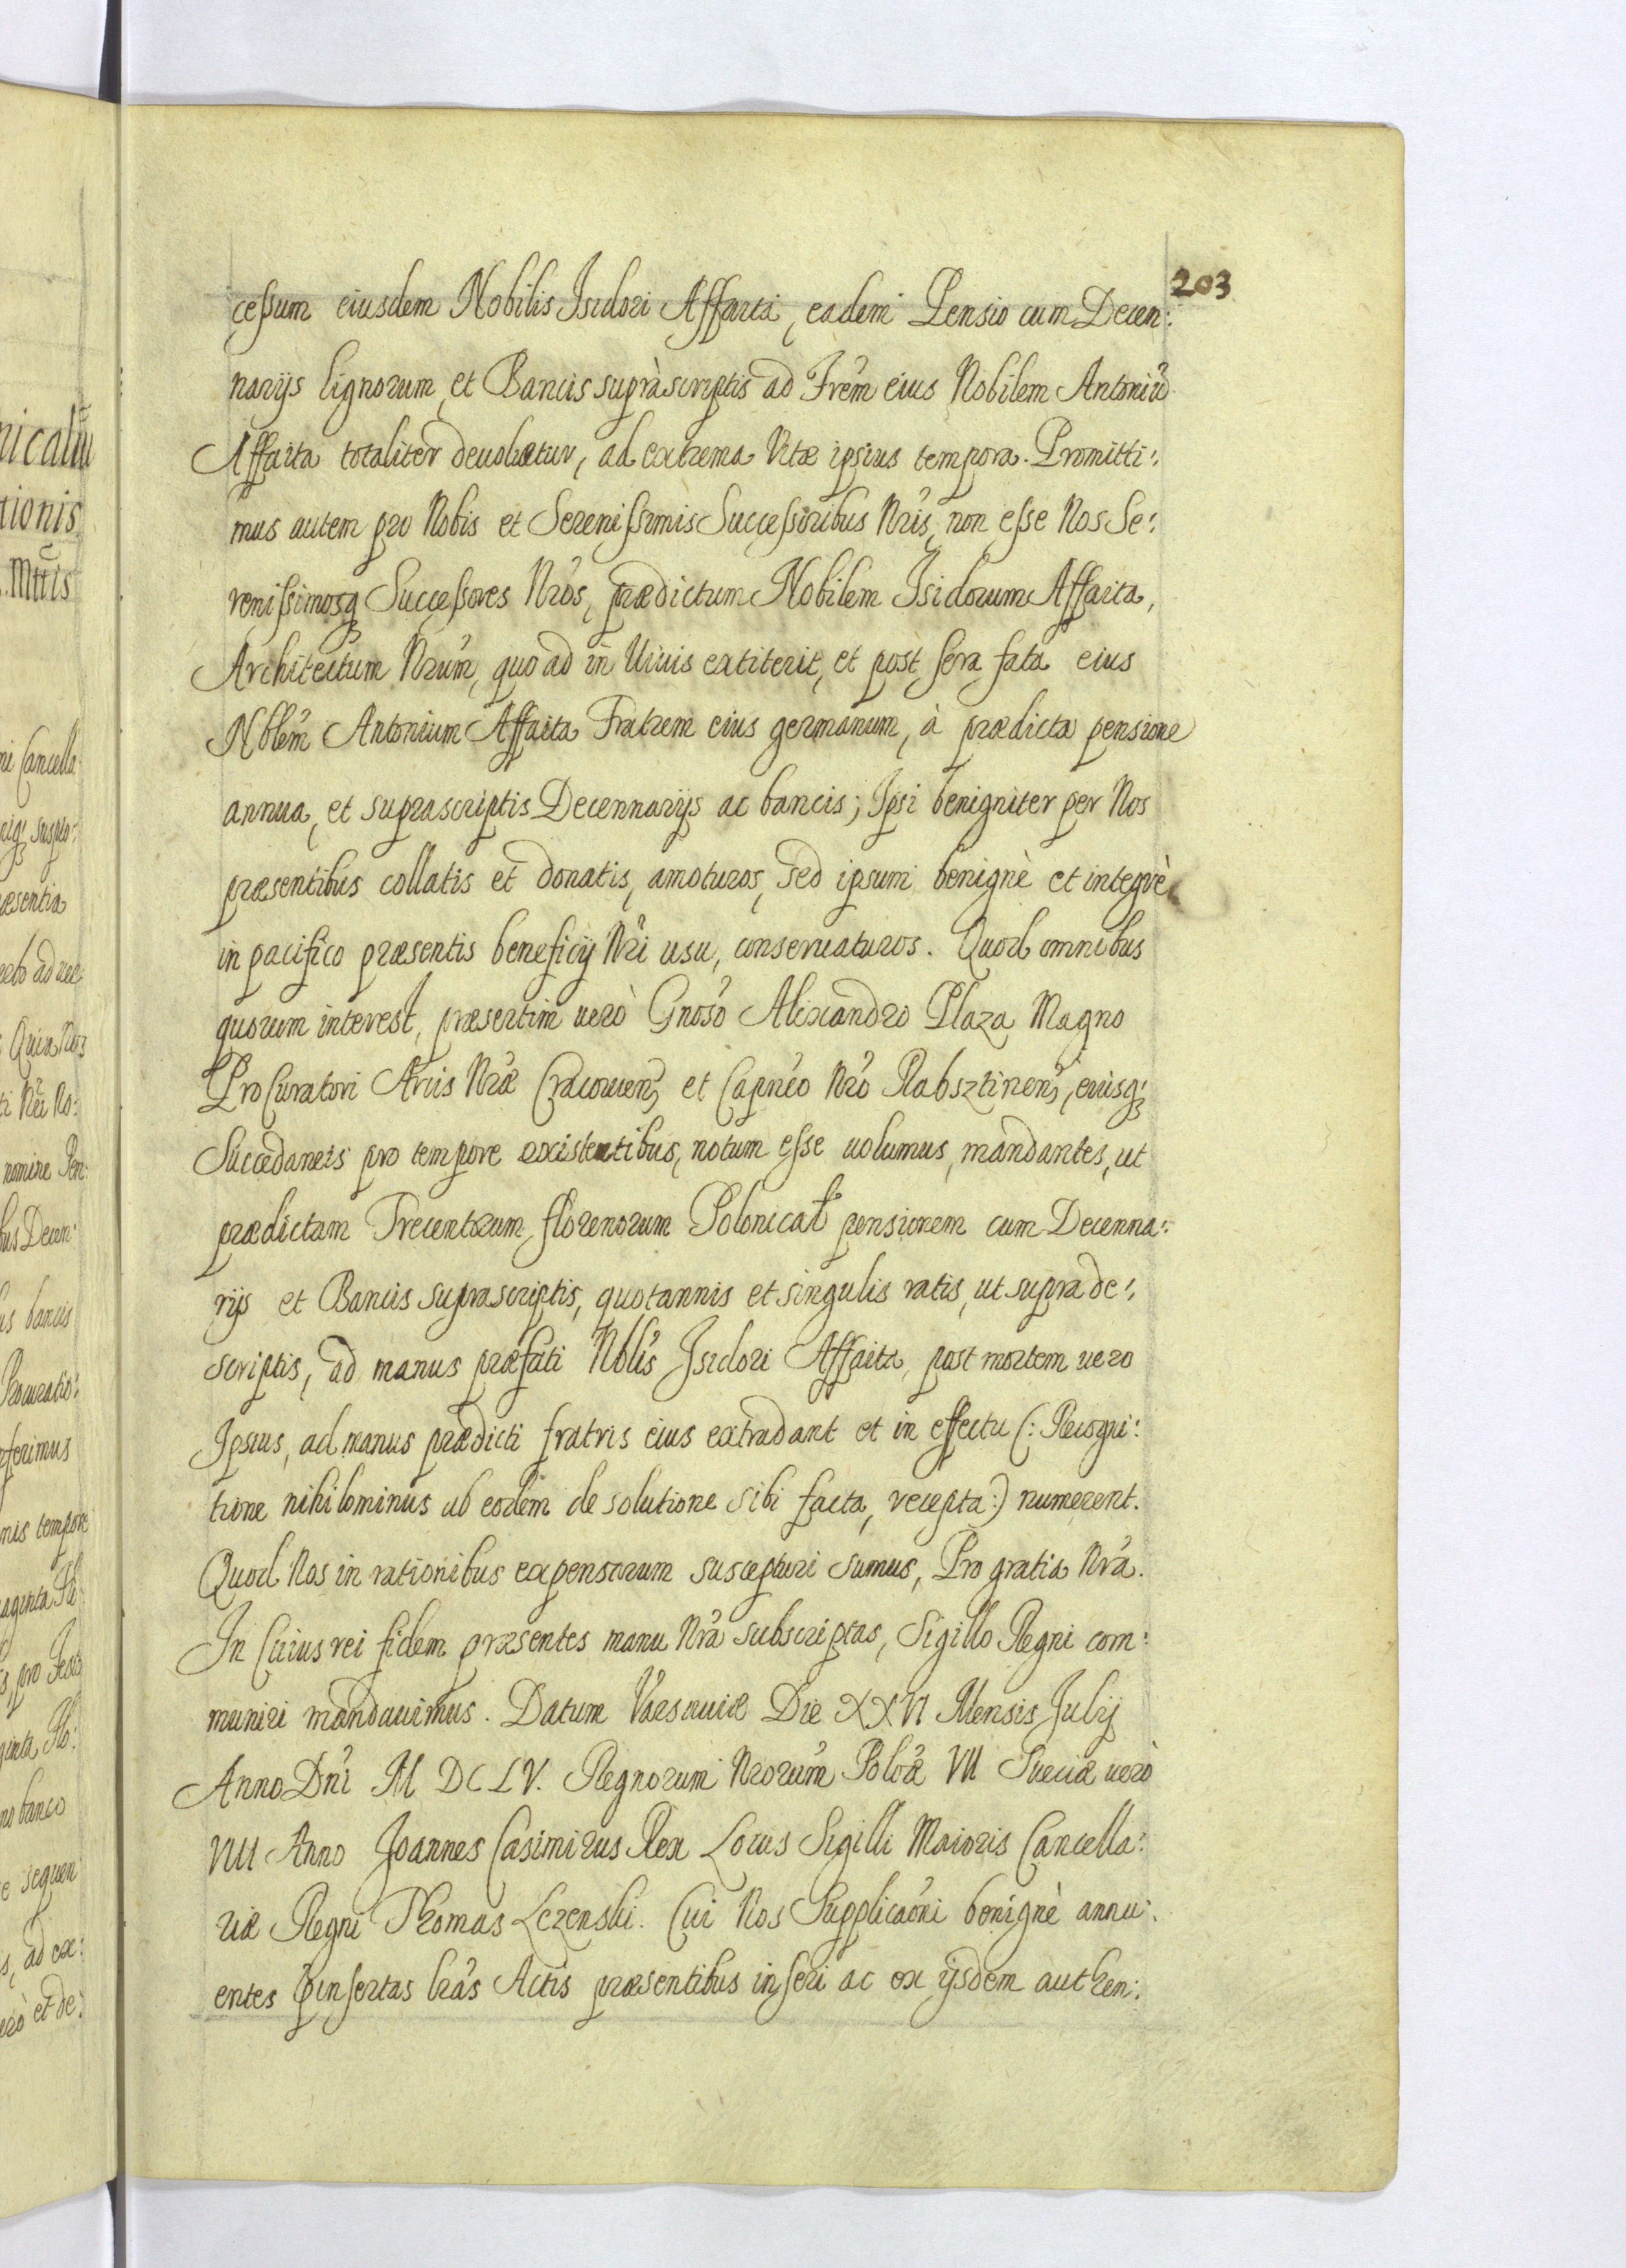 203
cessum eiusdem Nobilis Isidori Affaita, eadem Pensio cum Decen:
narijs lignorum et Bancis supràscriptis ad Frẽm eius Nobilem Antoniũ
Affaita totaliter deuoluetur, ad extrema Vitæ ipsius tempora. Promitti:
mus autem pro Nobis et Serenissimis Successoribus Nr̃is, non esse Nos Se:
renissimosq Successores Nr̃os, prædictum Nobilem Isidorum Affaita,
Architectum Nr̃um, quo ad in Uiuis extiterit, et post sera fata eius
Nblẽm Antonium Affaita Fratrem eius germanum, à prædicta pensione
annua, et suprascriptis Decennarijs ac bancis; Ipsi benigniter per Nos
præsentibus collatis et donatis, amoturos, sed ipsum benignè et integrè
in pacifico præsentis beneficij Nr̃i usu, conseruaturos. Quod omnibus
quorum interest, præsertim uerò Gnõso Alexandro Plaza Magno
ProCuratori Arcis Nr̃æ Cracouien, et Capnẽo Nr̃o Rabsztinen, eiusq
Succedaneis pro tempore existentibus, notum esse uolumus, mandantes, ut
prædictam Trecentorum florenorum Polonical pensionem cum Decenna:
rijs et Bancis suprascriptis, quotannis et singulis ratis, ut supra de:
scriptis, ad manus præfati Nblis Isidori Affaita, post mortem uero
Ipsius, ad manus prædicti fratris eius extradant et in effectu (: Recogni:
tione nihilominus ab eodem de solutione sibi facta, recepta:) numerent.
Quod Nos in rationibus expensarum suscepturi sumus, Pro gratia Nr̃a.
In Cuius rei fidem præsentes manu Nr̃a subscriptas, Sigillo Regni com:
muniri mandauimus. Datum Varsauiæ Die XXVI Mensis Julij
Anno Dñi M DCLV. Regnorum Nr̃orum Polõæ VII Sueciæ uerò
VIII Anno Joannes Casimirus Rex Locus Sigilli Maioris Cancella:
riæ Regni Thomas Lezenski. Cui Nos Supplicaõni benignè annu:
entes præinsertas lrãs Actis præsentibus inseri ac ex ijsdem authen: